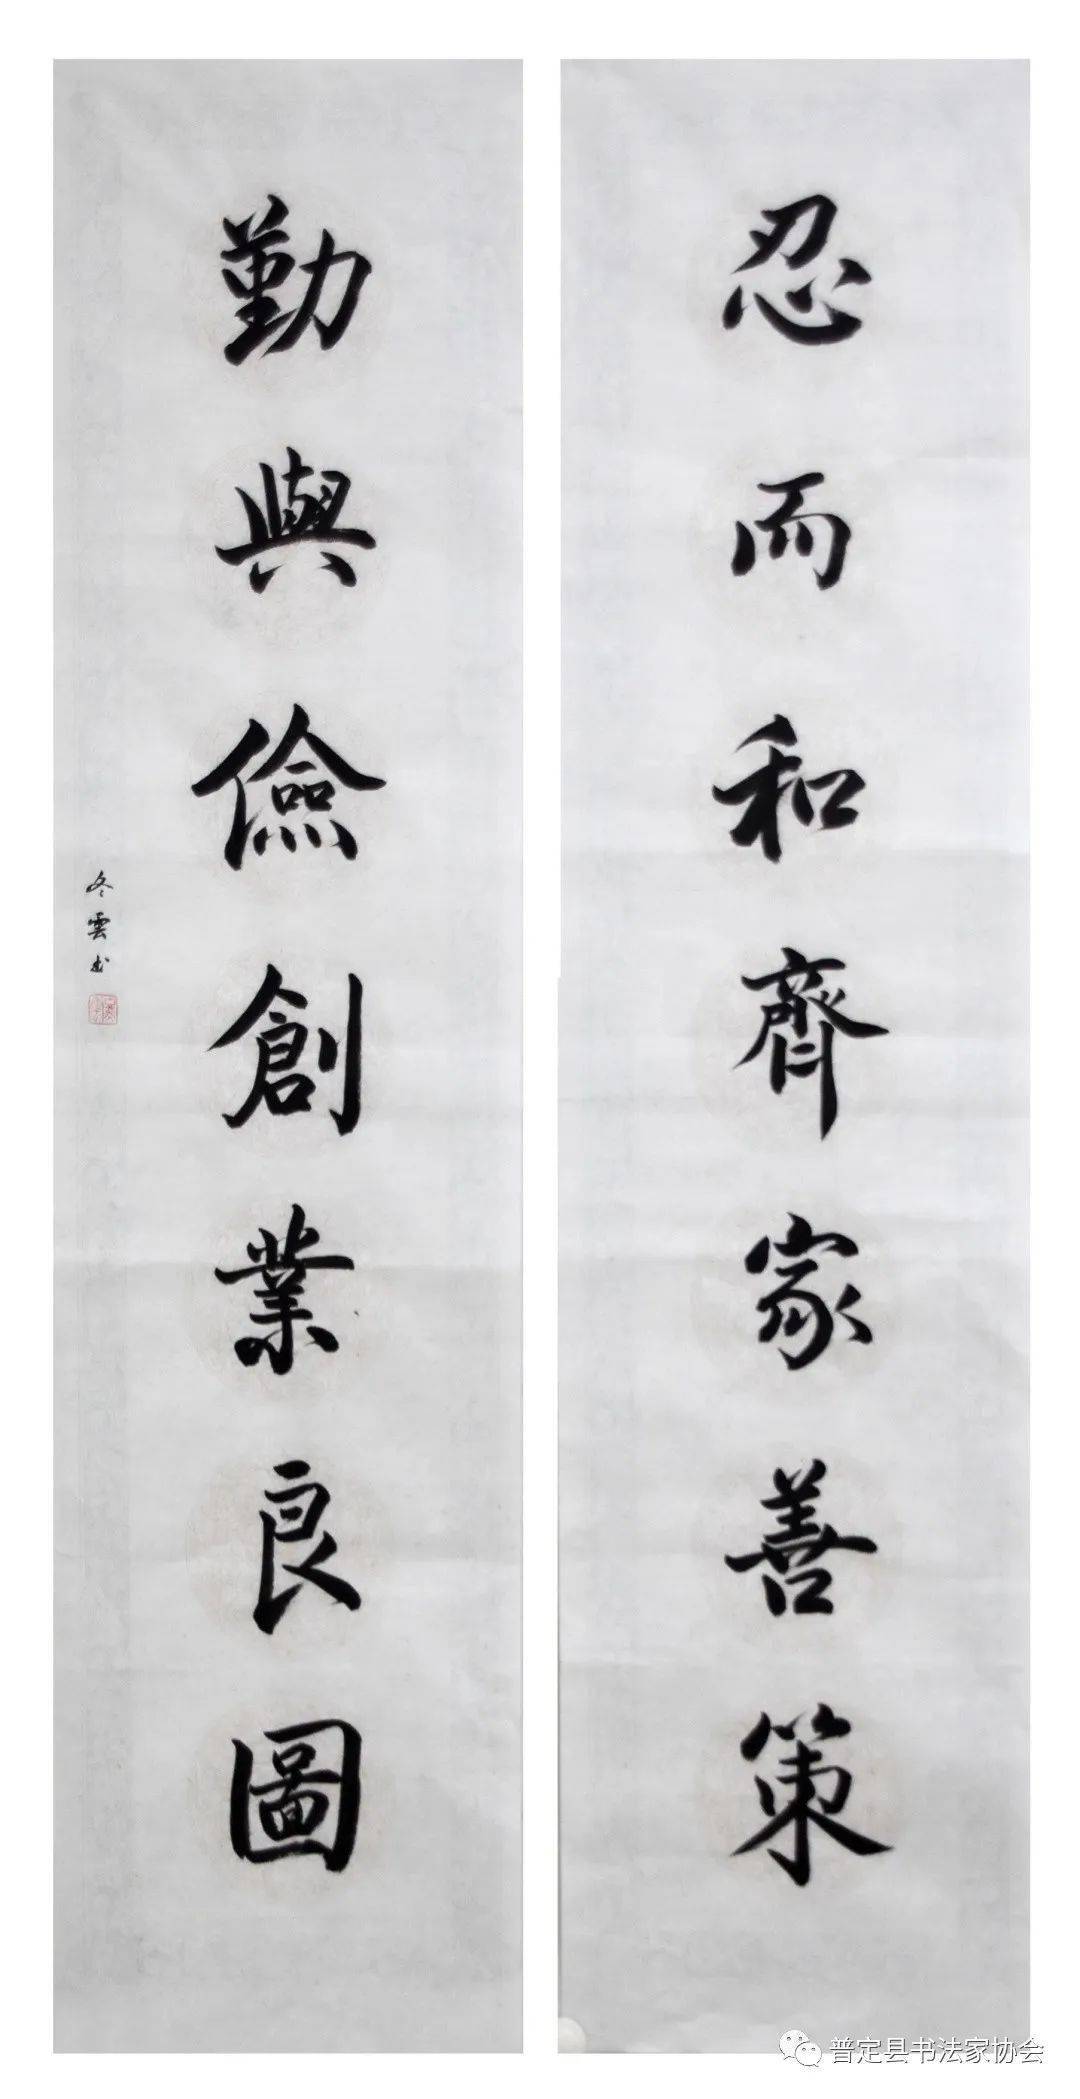 忍而和齊家善策
勤與儉創業良圖
冬雲书
普定县书法家协会